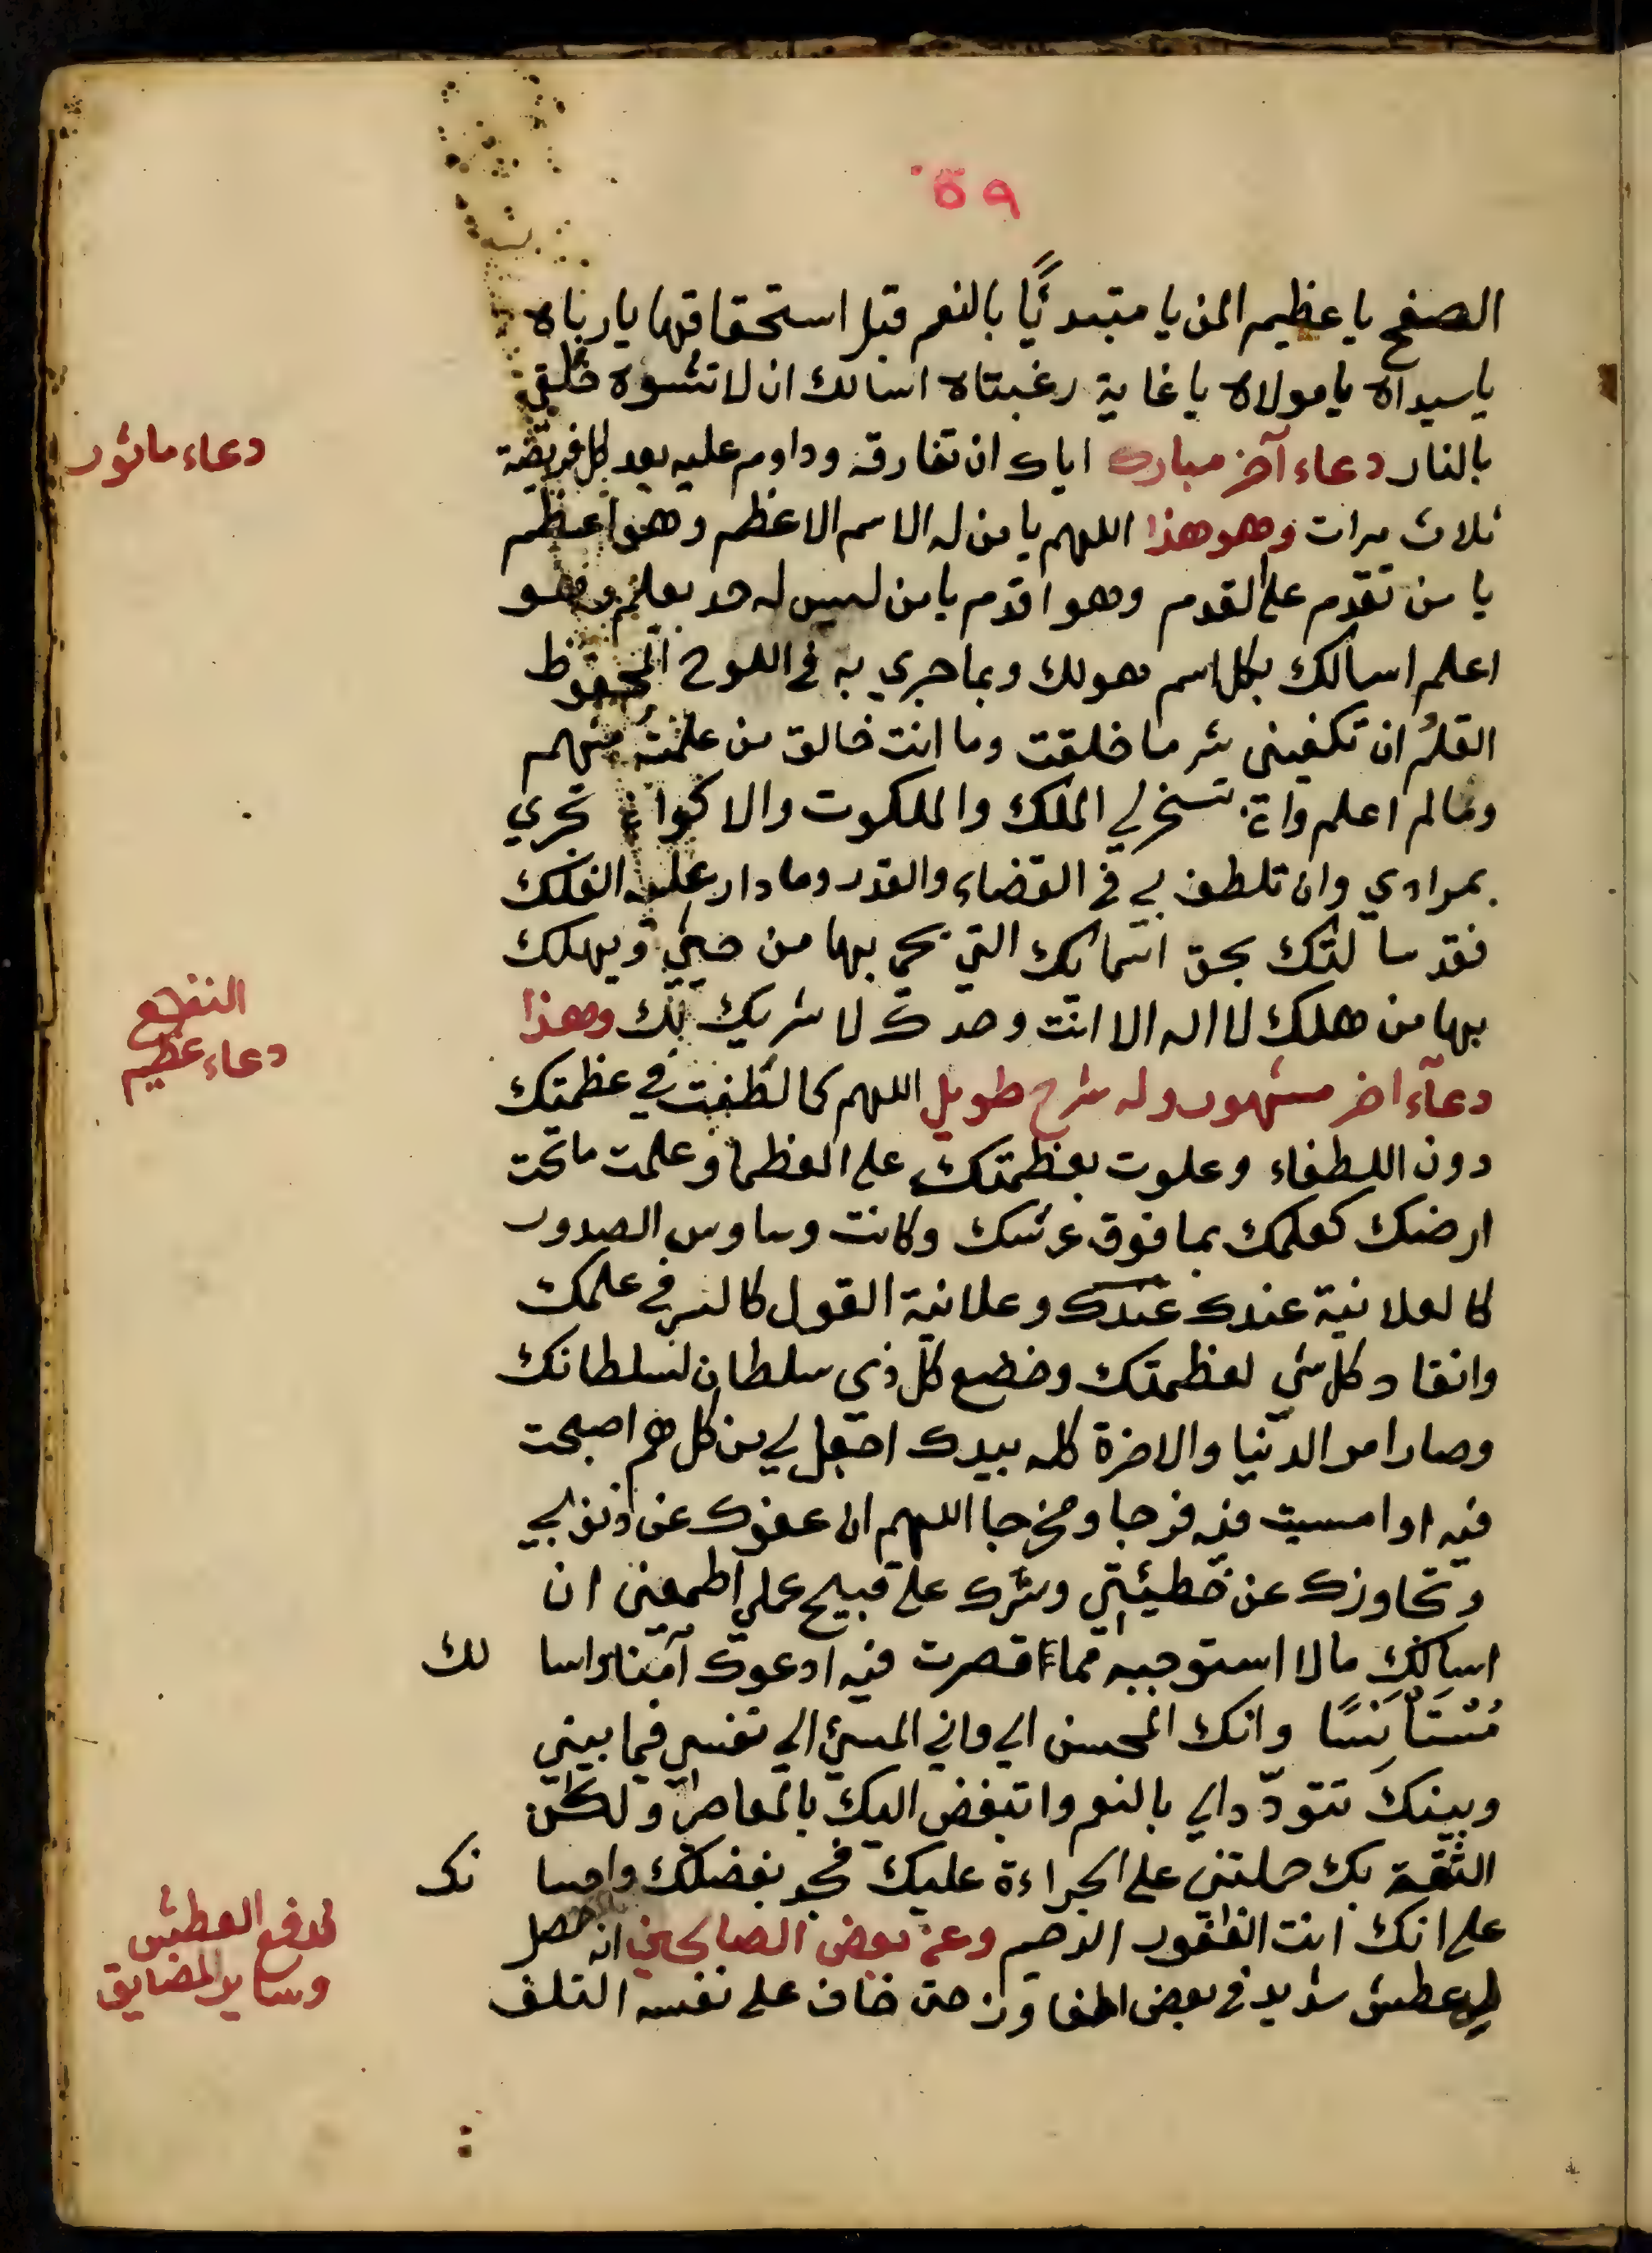 ٥٩
الصفح يا عظيم المن يا مبتدئًا بالنعم قبل استحقاقها يا رباه
يا سيداه يا مولاه يا غاية رغبتاه اسالك ان لا تشوه خلقي
بالنار دعاء آخر مبارك اياك ان تفارقه وداوم عليه بعد كل فريضة
دعاء ماثور
ثلاث مرات وهو هذا اللهم يا من له الاسم الاعظم وهو اعظم
يا من تقدم على القدم وهو اقدم يا من ليس له حد يعلم وهو
اعلم اسالك بكل اسم هو لك وبما جري به في اللوح المحفوظ
القلم ان تكفيني شر ما خلقت وما انت خالق من علمت منهم
وما لم اعلم وان تسخر لي الملك والملكوت والاكوان تجري
بمرادي وان تلطف بي في القضاء والقدر وما دار عليه الفلك
فقد سالتك بحق اسمائك التي يحي بها من حيي ويهلك
بها من هلك لا اله الا انت وحدك لا شريك لك وهذا
النفع
دعاء عظيم
دعآء اخر مشهور وله شرح طويل اللهم كما لطفت في عظمتك
دون اللطفاء وعلوت بعظمتك على العظما وعلمت ما تحت
ارضك كعلمك بما فوق عرشك وكانت وساوس الصدور
كالعلانية عندك عندك وعلانية القول كالسر في علمك
وانقاد كل شي لعظمتك وخضع كل ذي سلطان لسلطانك
وصار امر الدنيا والاخرة كله بيدك اجعل لي من كل هم اصبحت
فيه او امسيت فيه فرجا ومخرجا اللهم ان عفوك عن ذنوبي
وتجاوزك عن خطيئتي وسترك على قبيح عملي اطمعني ان
اسالك ما لا استوجبه مما قصرت فيه ادعوك آمنا واسالك
مُسْتَأنَسًا وانك المحسن الي واني المسئ الي نفسي فيما بيني
وبينك تتودّد الي بالنعم واتبغض اليك بالمعاصي ولكن
الثقة بك حملتني على الجراءة عليك فجد بفضلك واحسانك
على انك انت الغفور الرحيم وعن بعض الصالحين انه حصل
لدفع العطش
وساير المضايق
لي عطش شديد في بعض المفاوز حتى خاف على نفسه التلف